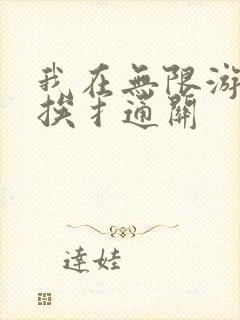 我在無限游
挨扌通關
達娃